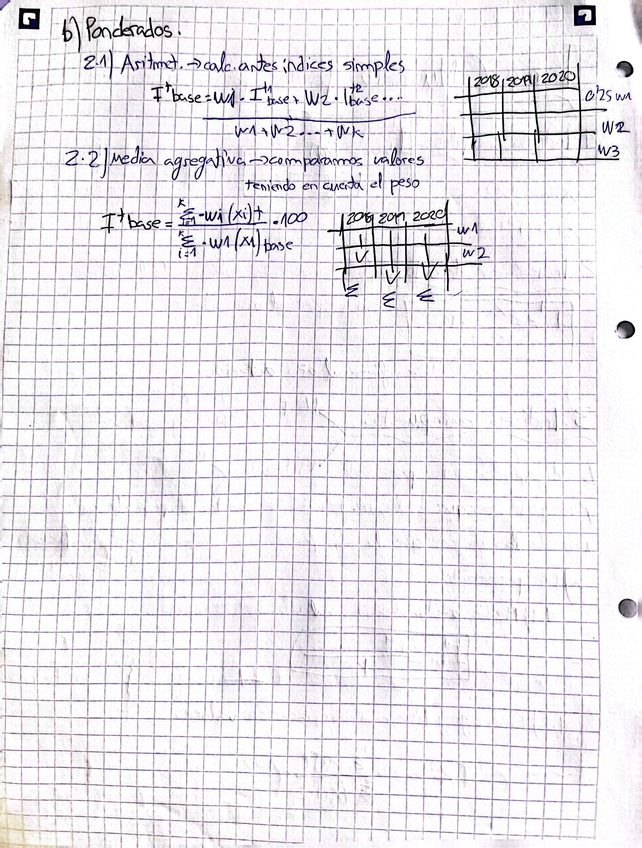 b) Ponderados.
2.1) Aritmet. → calc. antes índices simples
I^t base = w1 · I^t1 base + w2 · I^t2 base ...
w1 + w2 ... + wk
2018 2019 2020
0'25 w1
w2
w3
2.2) Media agregativa → comparamos valores
teniendo en cuenta el peso
I^t base = Σ^k i=1 · wi (xi) t / Σ^k i=1 · w1 (x1) base · 100
2018 2019 2020
w1
w2
Σ Σ Σ